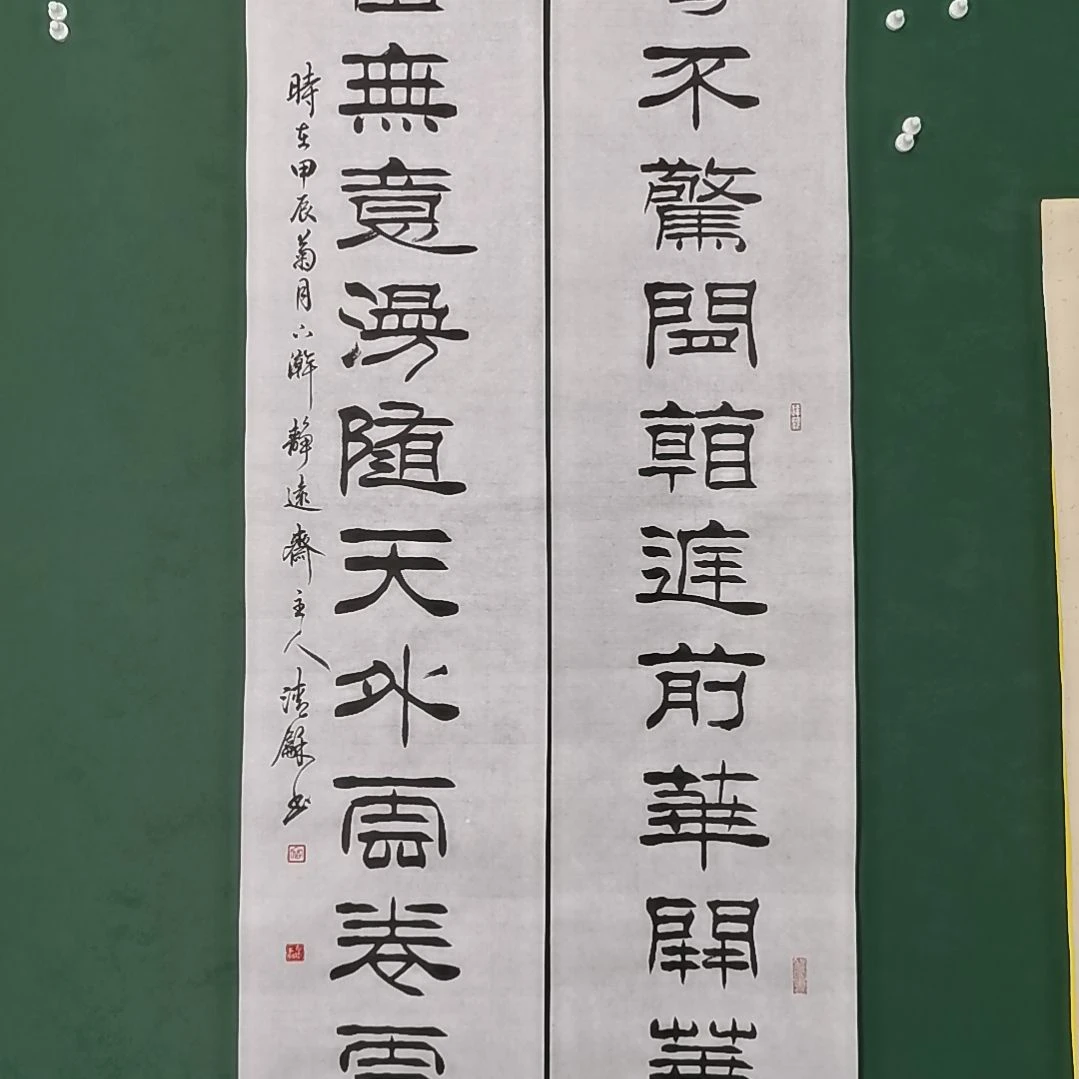 不驚閒看庭前華開華
無意漫隨天外雲卷雲
時在甲辰菊月下澣靜遠齋主人清龢书